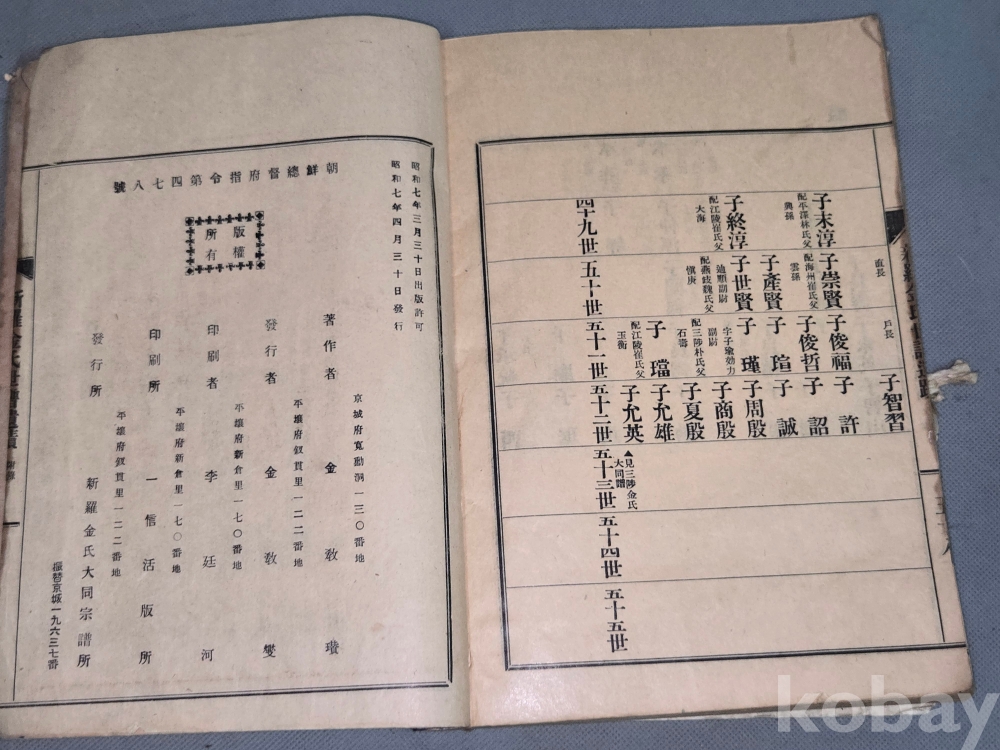 子末淳
配平澤林氏父
興孫
子終淳
配江陵崔氏父
大海
四十九世
直長
子崇賢
配海州崔氏父
雲孫
子產賢
子世賢
迪順副尉
配燕歧魏氏父
愼庚
五十世
戶長
子俊福
子俊哲
子瑄
子瑾
字子瑜効力
副尉
配三陟朴氏父
石壽
子璫
配江陵崔氏父
玉衡
五十一世
子智習
子許
子詔
子誠
子周殷
子商殷
子夏殷
子允雄
子允英
五十二世
▲見三陟金氏
大同譜
五十三世
五十四世
五十五世
昭和七年三月三十日出版許可
昭和七年四月三十日發行
朝鮮總督府指令第四七八號
版權
所有
京城府寬勳洞一三〇番地
著作者 金敎
平壤府釵貫里一二二番地
發行者 金敎燮
平壤府新倉里一七〇番地
印刷者 李廷河
平壤府新倉里一七〇番地
印刷所 一信活版所
平壤府釵貫里一二二番地
發行所 新羅金氏大同宗譜所
振替京城一九六三七番
新羅金氏
kobay